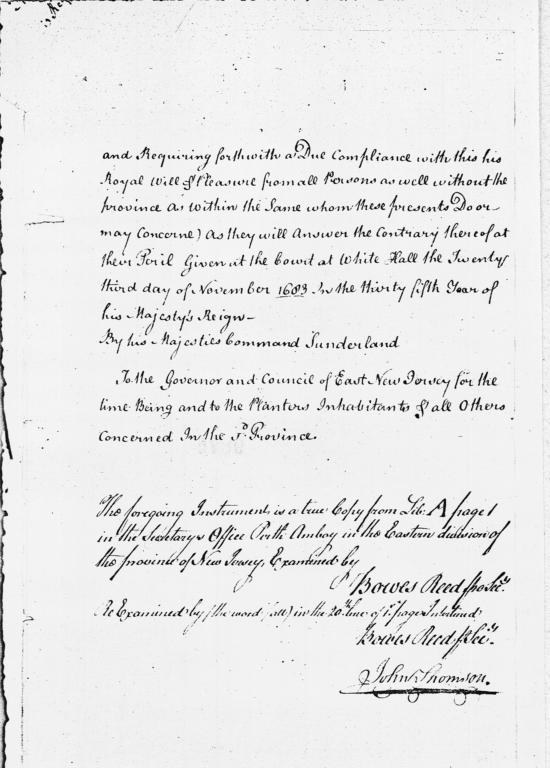 and Requiring forthwith a Due Compliance with this his
Royal Will & Pleasure from all Persons as well without the
province as within the Same whom these presents Do or
may Concerne) As they will Answer the Contrary thereof at
their Peril Given at the Court at White Hall the Twenty
third day of November 1683 In the thirty fifth Year of
his Majesty's Reign—
By his Majesties Command Sunderland
To the Governor and Council of East New Jersey for the
time Being and to the Planters Inhabitants & all Others
Concerned In the sd. Province.
The foregoing Instrument is a true Copy from Lib: A page 1
in the Secretarys Office Perth Amboy in the Eastern division of
the province of New Jersey, Examined by
Bowes Reed pro Secy.
Re Examined by (the word (all) in the 20th line of 1st page Interlined
Bowes Reed Secy.
John Thomson.